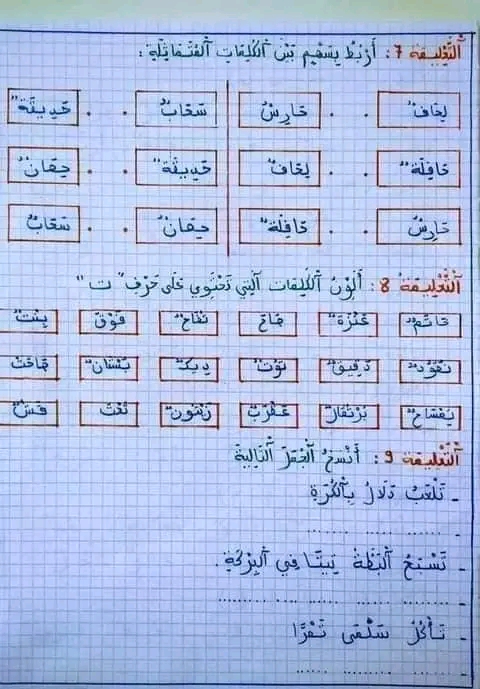 التَّعْلِيمَة 7: أَرْبُطُ بِسَهْمٍ بَيْنَ الْكَلِمَاتِ الْمُتَمَاثِلَةِ:
لِحَافٌ . . حَارِسٌ سَحَابٌ . . حَدِيقَةٌ
حَافِلَةٌ . . لِحَافٌ حَدِيقَةٌ . . حِصَانٌ
حَارِسٌ . . حَافِلَةٌ حِصَانٌ . . سَحَابٌ
التَّعْلِيمَة 8: أُلَوِّنُ الْكَلِمَاتِ الَّتِي تَحْتَوِي عَلَى حَرْفِ "ت"
خَاتَمٌ عَنْزَةٌ تُفَّاحٌ فَوْقَ بِنْتٌ
نُقُودٌ دَقِيقٌ تُوتٌ دِيكٌ بُسْتَانٌ
تِمْسَاحٌ بُرْتُقَالٌ عَقْرَبٌ زَيْتُونٌ تَحْتَ
التَّعْلِيمَة 9: أَنْسَخُ الْجُمَلَ التَّالِيَةَ
- تَلْعَبُ دَلَالُ بِالْكُرَةِ
- تَسْبَحُ الْبَطَّةُ فِي الْبِرْكَةِ.
- تَأْكُلُ سَلْمَى تَمْرًا